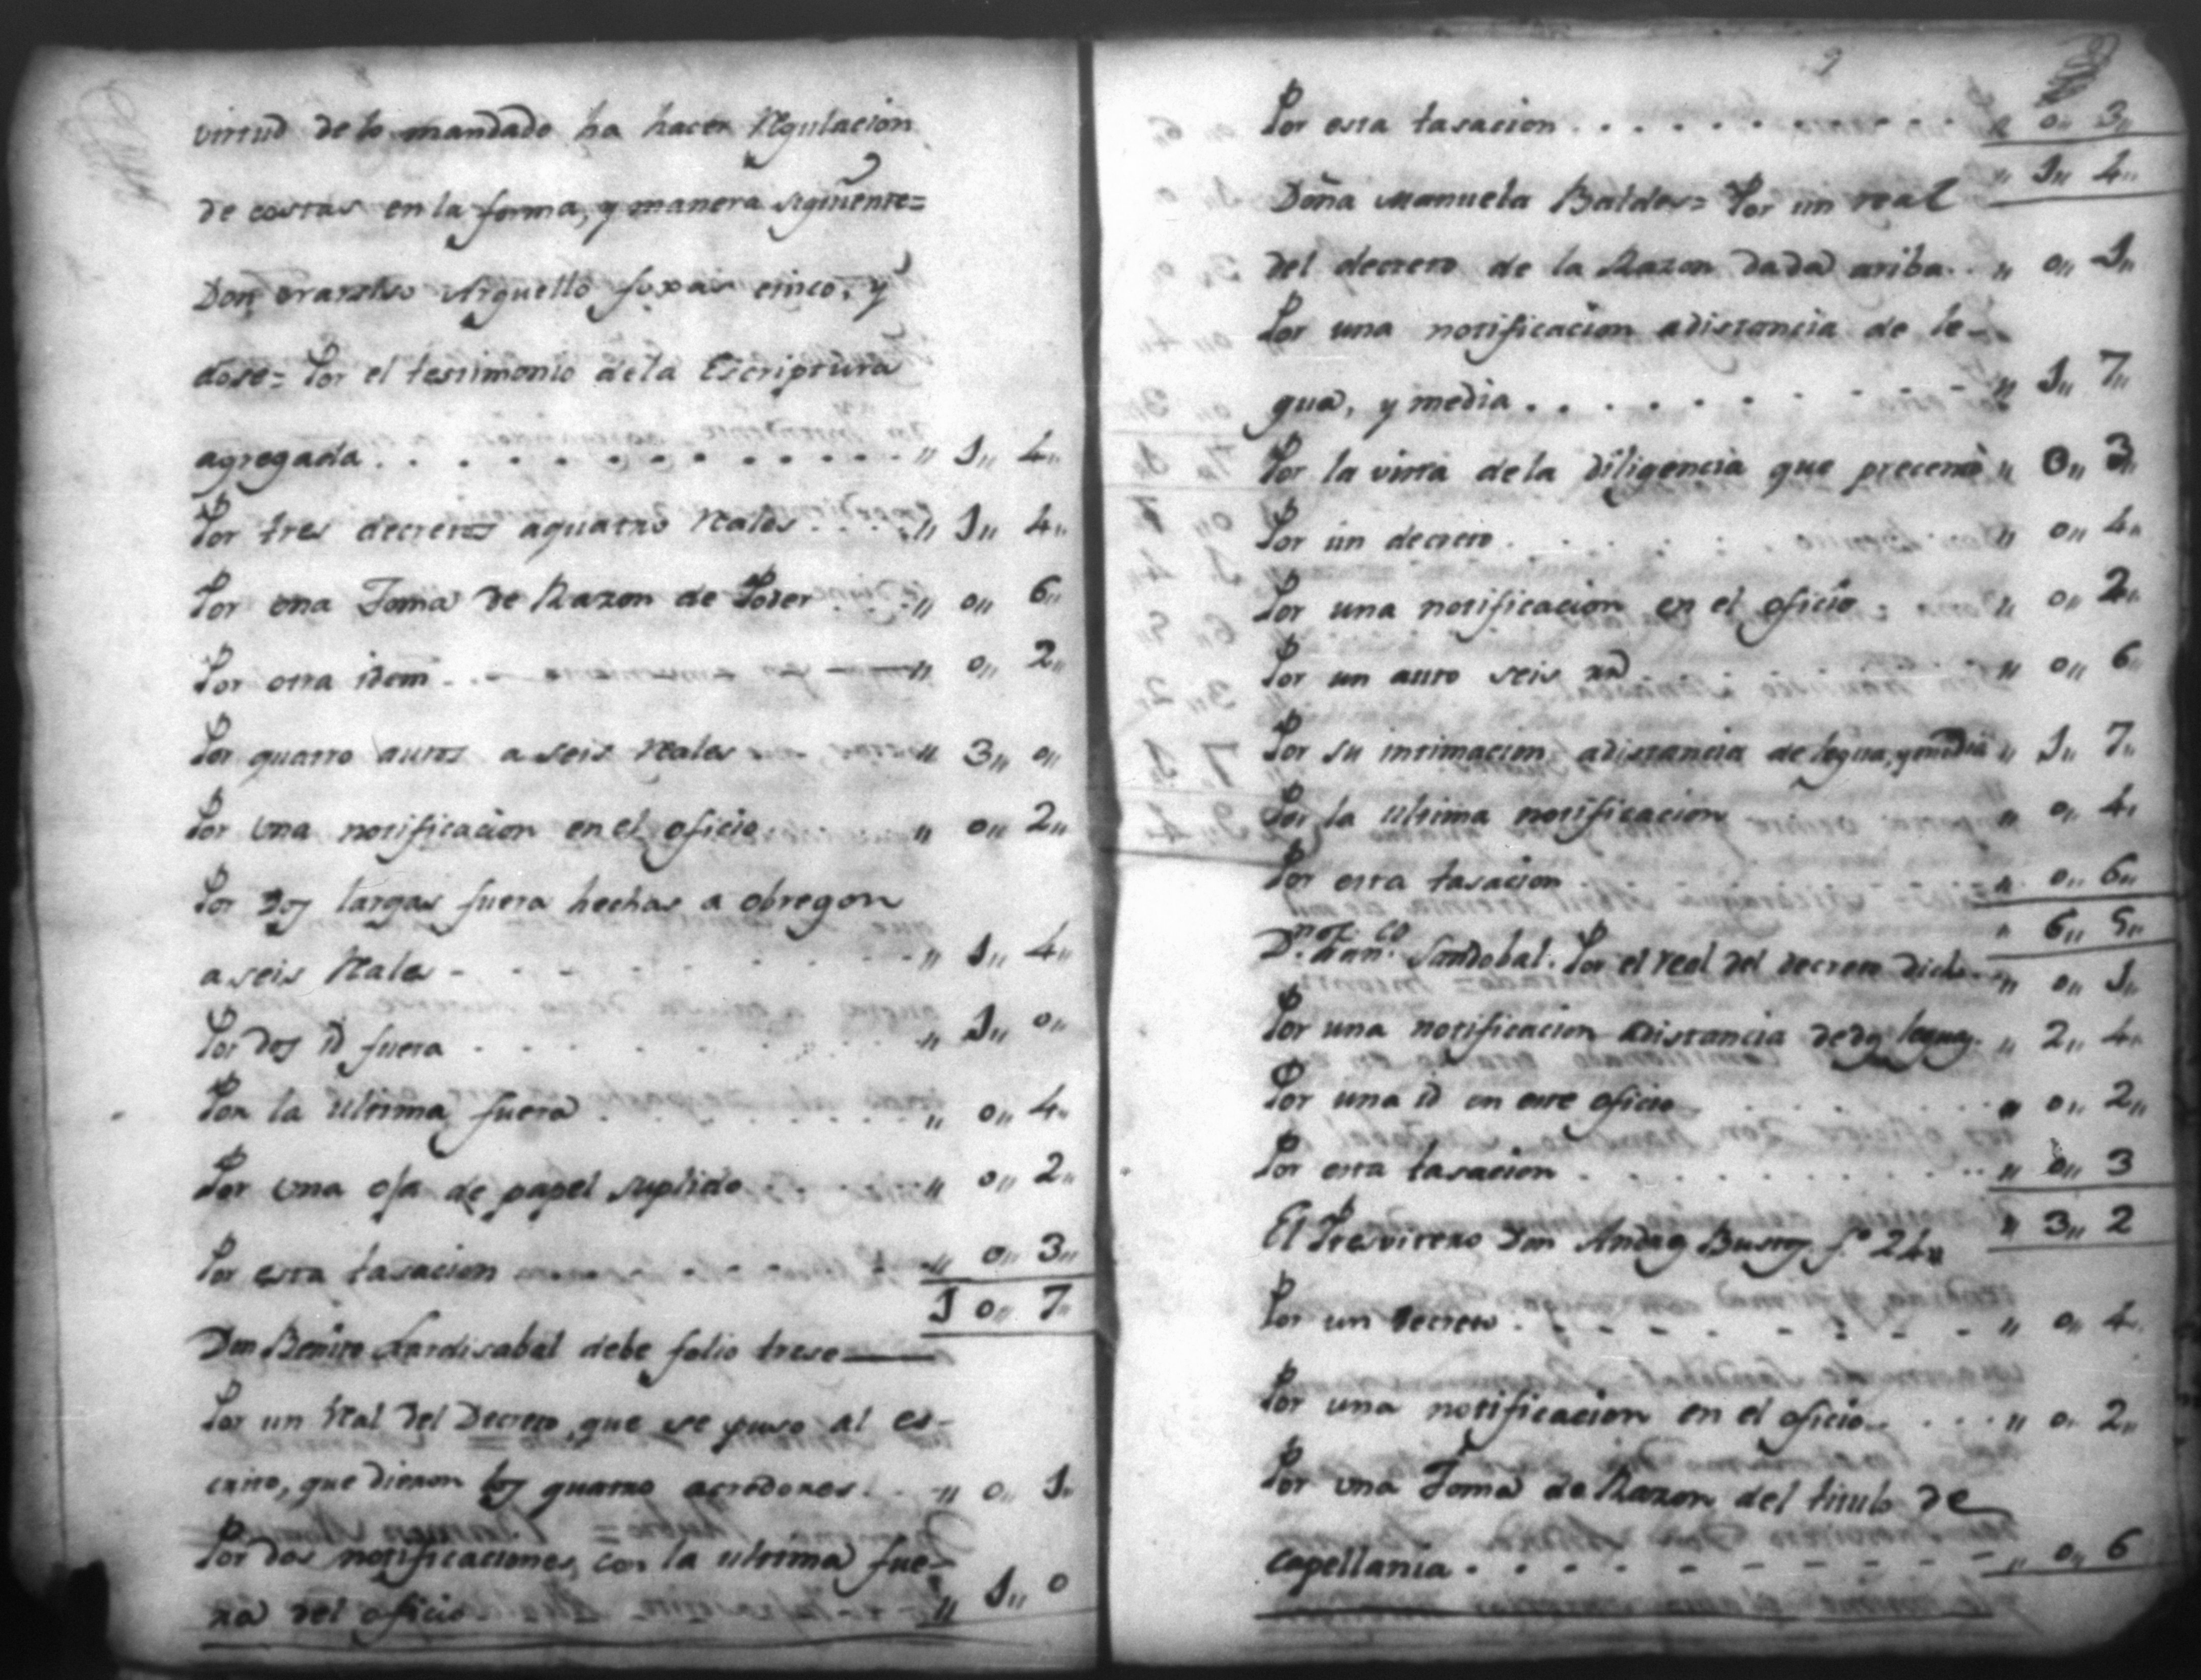 8
virtud de lo mandado ha hacer Regulacion
de costas en la forma, y manera siguiente=
Don Franzisco Arguello foxas cinco, y
dose= Por el testimonio dela Escriptura
agregada . . . . . . . . . . . . . " 1,, 4,,
Por tres decretos aquatro Reales . . . " 1,, 4,,
Por una Toma de Razon de Poder . . " 0,, 6,,
Por otra idem " 0,, 2,,
Por quatro autos a seis Reales " 3,, 0,,
Por una notificacion en el oficio " 0,, 2,,
Por dos largas fuera hechas a obregon
a seis Reales - . . . . . . . . " 1,, 4,,
Por dos id fuera . . . . . . . . " 1,, 0,,
Por la ultima fuera . . . . . . . " 0,, 4,,
Por una oja de papel suplido . . . " 0,, 2,,
Por esta tasacion . . . . . . . " 0,, 3,,
10,, 7,,
Don Benito Lardisabal debe folio trese
Por un Real del Decreto, que se puso al es-
crito, que dieron los quatro acredores . . " 0,, 1,,
Por dos notificaciones, con la ultima fue-
ra del oficio " 1,, 0
9
Por esta tasacion . . . . . . . . . . " 0,, 3,,
" 1,, 4,,
Doña Manuela Baldes= Por un real
del decreto de la Razon dada ariba . . " 0,, 1,,
Por una notificacion adistancia de le-
gua, y media . . . . . . . . . . " 1,, 7,,
Por la vista dela diligencia que precente " 0,, 3,,
Por un decreto . . . . . . " 0,, 4,,
Por una notificacion en el oficio . " 0,, 2,,
Por un auto seis rs " 0,, 6
Por su intimacion adistancia de legua, y media " 1,, 7,,
Por la ultima notificacion " 0,, 4,,
Por esta tasacion " 0,, 6,,
" 6,, 5,,
Dn. Franco. Sandobal. Por el real del decreto dicho " 0,, 1,,
Por una notificacion adistancia de dos leguas " 2,, 4,,
Por una id en este oficio . . . . . . " 0,, 2,,
Por esta tasacion . . . . . . . . " 0,, 3
" 3,, 2
El Presvitero Don Andres Bustos fo. 24
Por un decreto . - - - - - - - " 0,, 4,,
Por una notificacion en el oficio . . . . " 0,, 2,,
Por una Toma de Razon del titulo de
capellania . . . . . . . . . . . " 0,, 6